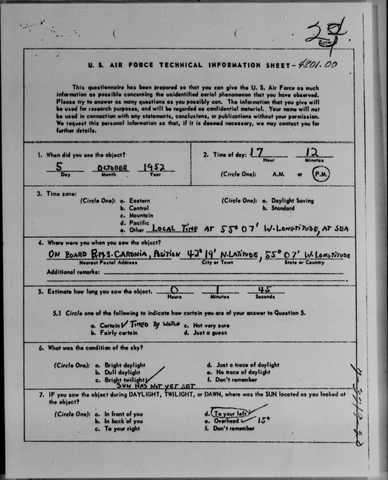 U. S. AIR FORCE TECHNICAL INFORMATION SHEET
This questionnaire has been prepared so that you can give the U. S. Air Force as much
information as possible concerning the unidentified aerial phenomenon that you have observed.
Please try to answer as many questions as you possibly can. The information that you give will
be used for research purposes, and will be regarded as confidential material. Your name will not
be used in connection with any statements, conclusions, or publications without your permission.
We request this personal information so that, if it is deemed necessary, we may contact you for
further details.
1. When did you see the object?
5 OCTOBER 1952
Day Month Year
2. Time of day: 17 12
Hour Minutes
(Circle One): A.M. or P.M.
3. Time zone:
(Circle One): a. Eastern
b. Central
c. Mountain
d. Pacific
e. Other LOCAL TIME AT 55° 07' W. LONGTITUDE, AT SEA
(Circle One): a. Daylight Saving
b. Standard
4. Where were you when you saw the object?
ON BOARD R.M.S. CARONIA, POSITION 42° 19' N. LATITUDE, 55° 07' W. LONGTITUDE
Nearest Postal Address City or Town State or Country
Additional remarks:
5. Estimate how long you saw the object. 0 1 45
Hours Minutes Seconds
5.1 Circle one of the following to indicate how certain you are of your answer to Question 5.
a. Certain TIMED BY WATCH
b. Fairly certain
c. Not very sure
d. Just a guess
6. What was the condition of the sky?
(Circle One): a. Bright daylight
b. Dull daylight
c. Bright twilight
SUN HAS NOT YET SET
d. Just a trace of daylight
e. No trace of daylight
f. Don't remember
7. IF you saw the object during DAYLIGHT, TWILIGHT, or DAWN, where was the SUN located as you looked at
the object?
(Circle One): a. In front of you
b. In back of you
c. To your right
d. To your left
e. Overhead 15°
f. Don't remember